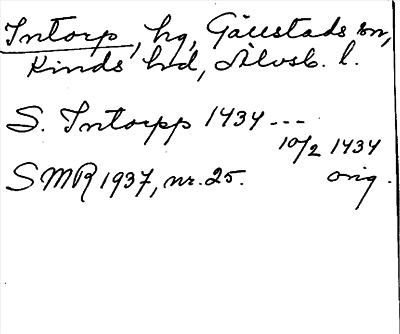 Intorp, hg, Gällstads sn,
Kinds hd, Älvsb. l.
S. Intorpp 1434 ---
10/2 1434
SMR 1937, nr. 25. orig.